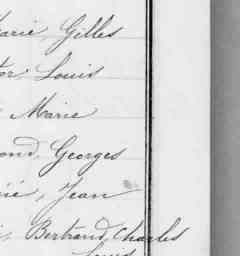 arie, Gilles
tor, Louis
Marie
ond, Georges
é, Jean
Bertrand, Charles
Louis